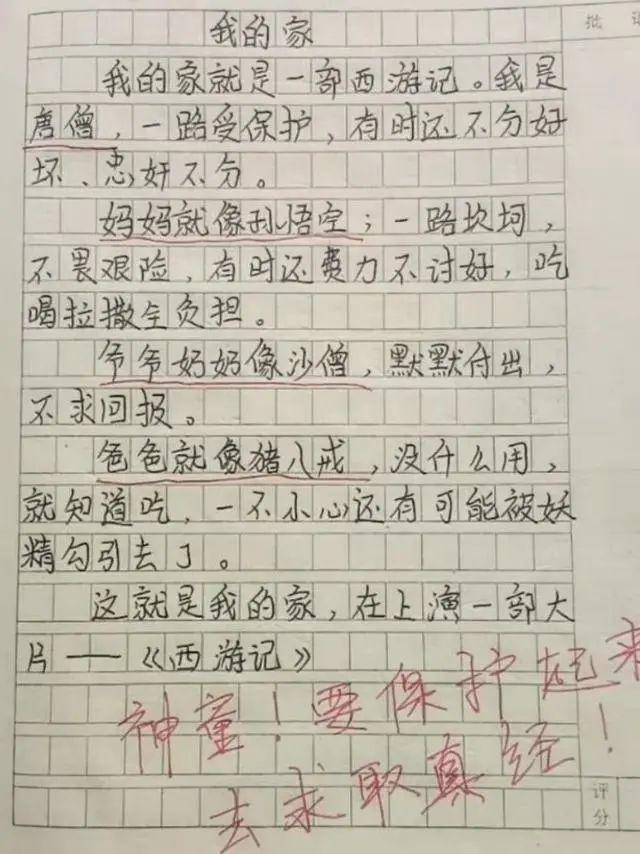 我的家
批
我的家就是一部西游记。我是
唐僧，一路受保护，有时还不分好
坏、忠奸不分。
妈妈就像孙悟空；一路坎坷，
不畏艰险，有时还费力不讨好，吃
喝拉撒全负担。
爷爷奶奶像沙僧，默默付出，
不求回报。
爸爸就像猪八戒，没什么用，
就知道吃，一不小心还有可能被妖
精勾引去了。
这就是我的家，在上演一部大
片——《西游记》
神童！要保护起来
去求取真经！
评
分